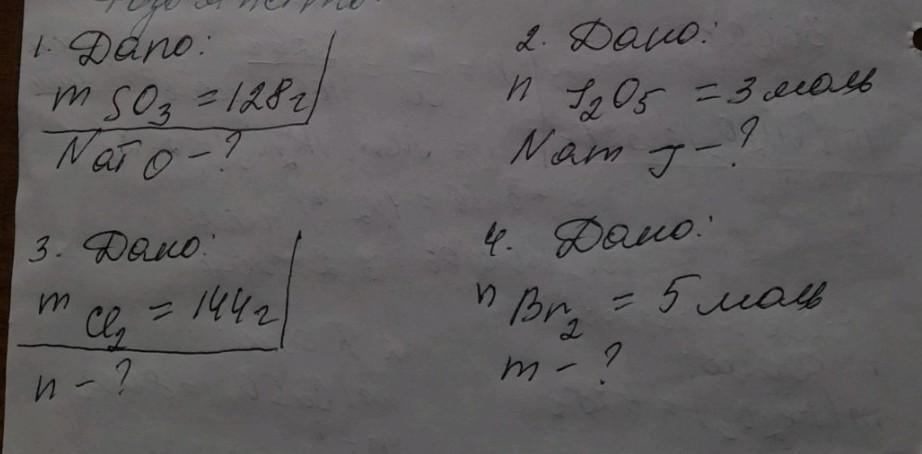 1. Дано:
m SO₃ = 128 г
Nат O - ?
2. Дано:
n J₂O₅ = 3 моль
Nат J - ?
3. Дано:
m Cl₂ = 144 г
n - ?
4. Дано:
n Br₂ = 5 моль
m - ?